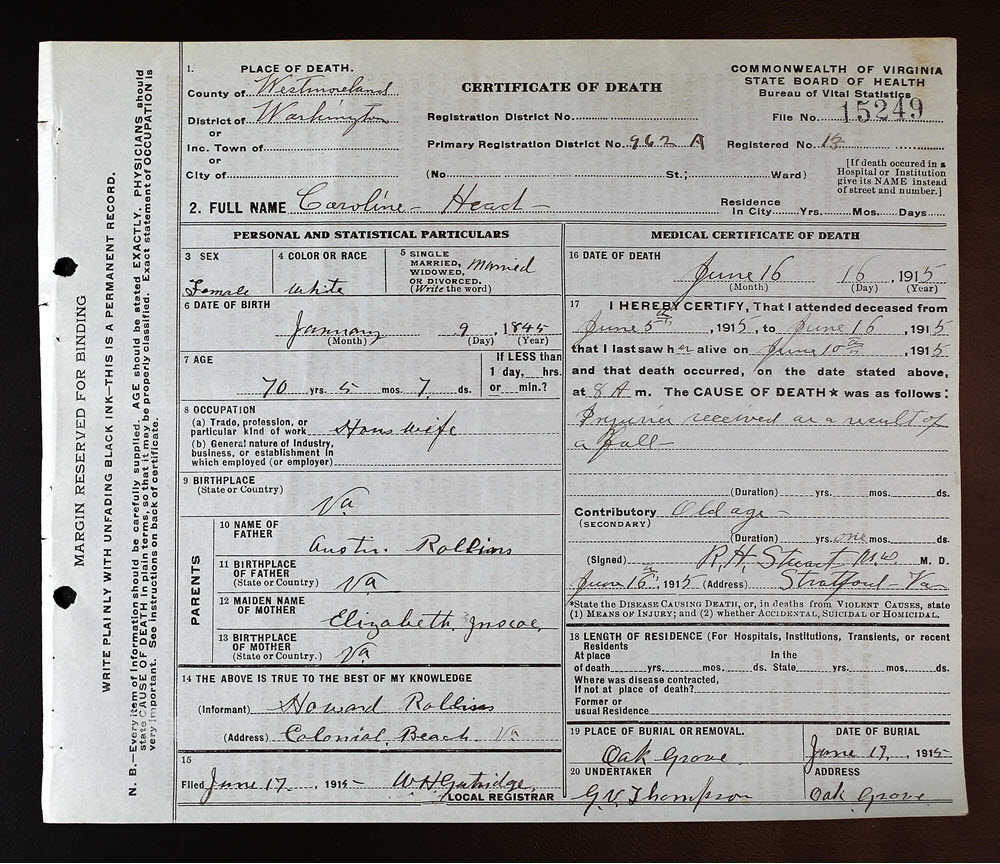 MARGIN RESERVED FOR BINDING
WRITE PLAINLY WITH UNFADING BLACK INK—THIS IS A PERMANENT RECORD.
N. B.—Every item of information should be carefully supplied. AGE should be stated EXACTLY. PHYSICIANS should
state CAUSE OF DEATH in plain terms, so that it may be properly classified. Exact statement of OCCUPATION is
very important. See instructions on back of certificate.
1. PLACE OF DEATH.
County of Westmoreland
District of Washington
or
Inc. Town of
or
City of
CERTIFICATE OF DEATH
Registration District No.
Primary Registration District No. 962 A
(No. St.; Ward)
COMMONWEALTH OF VIRGINIA
STATE BOARD OF HEALTH
Bureau of Vital Statistics
File No. 15249
Registered No. 13
[If death occured in a
Hospital or Institution
give its NAME instead
of street and number.]
2. FULL NAME Caroline Head
Residence
In City Yrs. Mos. Days
PERSONAL AND STATISTICAL PARTICULARS
3 SEX
Female
4 COLOR OR RACE
White
5 SINGLE
MARRIED,
WIDOWED,
OR DIVORCED.
(Write the word)
Married
6 DATE OF BIRTH
January 9, 1845
(Month) (Day) (Year)
7 AGE
70 yrs. 5 mos. 7 ds.
If LESS than
1 day, hrs.
or min.?
8 OCCUPATION
(a) Trade, profession, or
particular kind of work Hous wife
(b) General nature of Industry,
business, or establishment in
which employed (or employer)
9 BIRTHPLACE
(State or Country)
Va
PARENTS
10 NAME OF
FATHER
Austin Rollins
11 BIRTHPLACE
OF FATHER
(State or Country)
Va
12 MAIDEN NAME
OF MOTHER
Elizabeth Inscoe
13 BIRTHPLACE
OF MOTHER
(State or Country.)
Va
14 THE ABOVE IS TRUE TO THE BEST OF MY KNOWLEDGE
(Informant) Howard Rollins
(Address) Colonial Beach Va
15
Filed June 17, 1915 W H Gutridge
LOCAL REGISTRAR
MEDICAL CERTIFICATE OF DEATH
16 DATE OF DEATH
June 16 16, 1915
(Month) (Day) (Year)
17 I HEREBY CERTIFY, That I attended deceased from
June 5th, 1915, to June 16, 1915
that I last saw her alive on June 10th, 1915
and that death occurred, on the date stated above,
at 8 A m. The CAUSE OF DEATH★ was as follows:
Injuries received as a result of
a fall
(Duration) yrs. mos. ds.
Contributory Old age
(SECONDARY)
(Duration) yrs. one mos. ds.
(Signed) R. H. Stuart M. D.
June 16th, 1915 (Address) Stratford Va
*State the DISEASE CAUSING DEATH, or, in deaths from VIOLENT CAUSES, state
(1) MEANS OF INJURY; and (2) whether ACCIDENTAL, SUICIDAL or HOMICIDAL.
18 LENGTH OF RESIDENCE (For Hospitals, Institutions, Transients, or recent
Residents
At place In the
of death yrs. mos. ds. State yrs. mos. ds.
Where was disease contracted,
If not at place of death?
Former or
usual Residence
19 PLACE OF BURIAL OR REMOVAL.
Oak Grove
DATE OF BURIAL
June 17, 1915
20 UNDERTAKER
G. V. Thompson
ADDRESS
Oak Grove